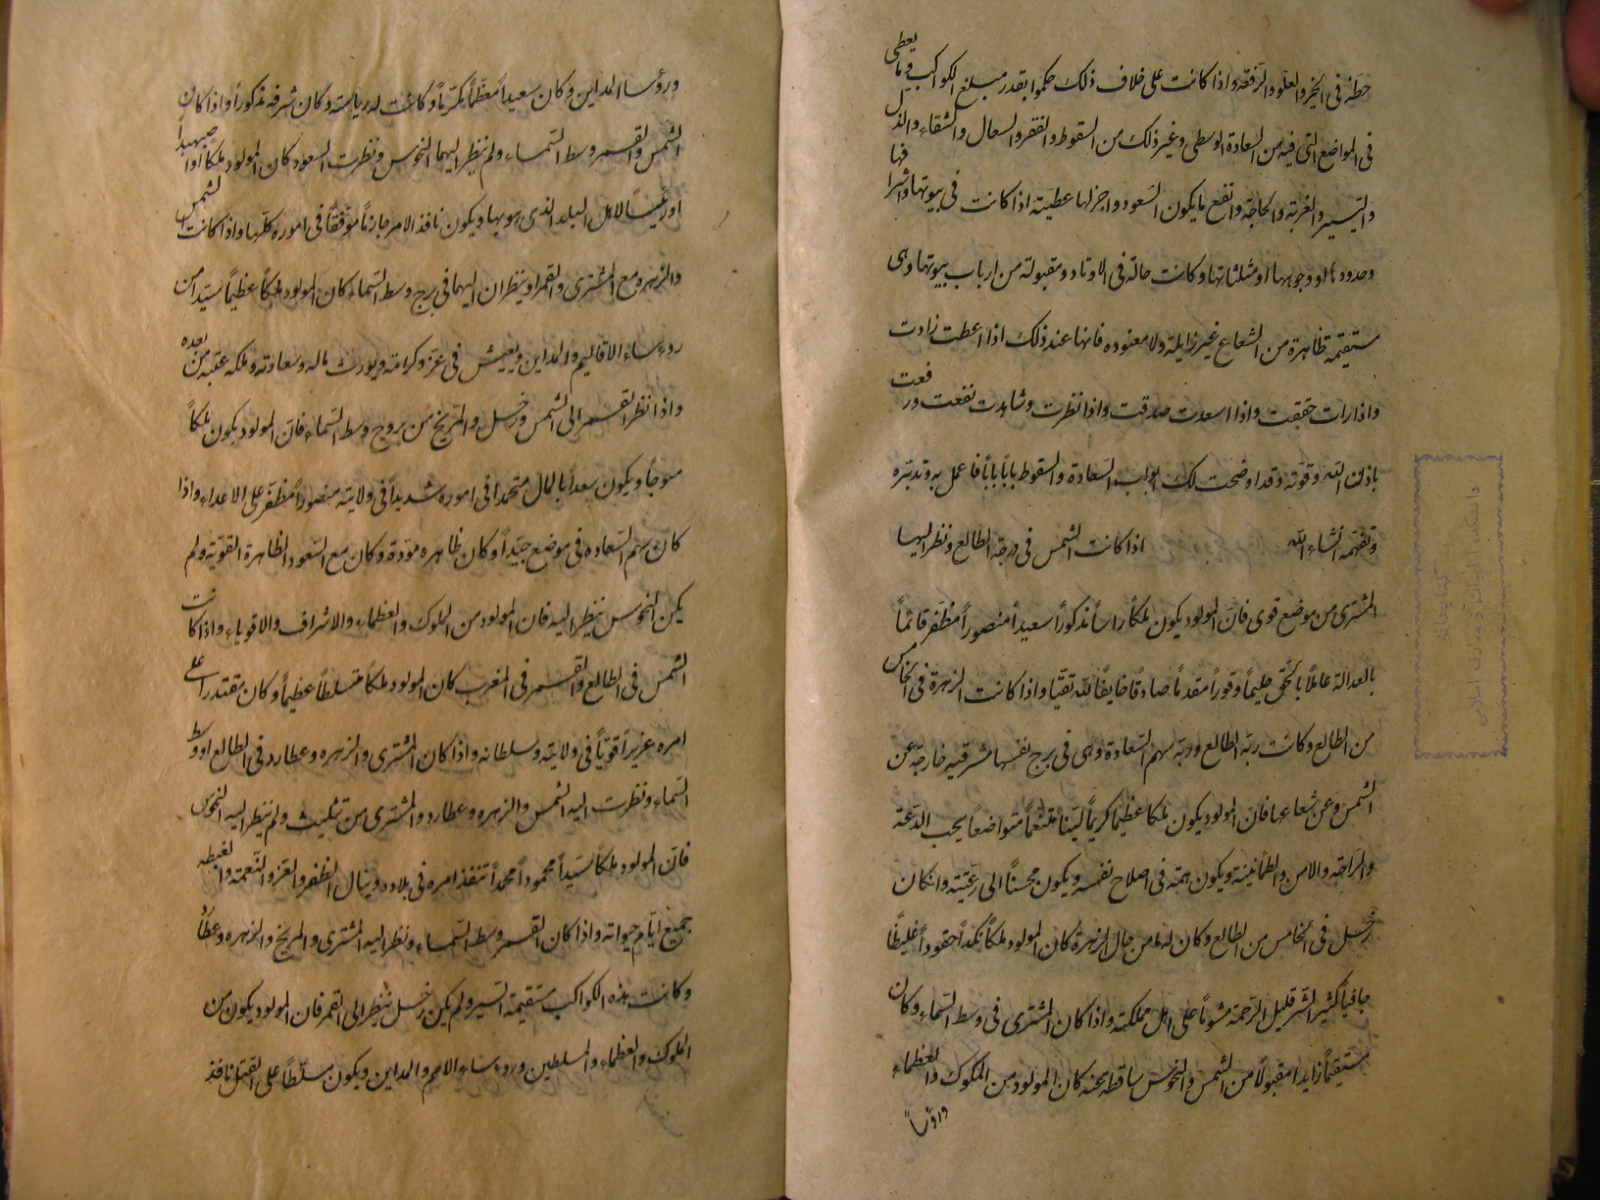 حظه فی الخیر والعلو والرفعة واذا کانت علی خلاف ذلک حکموا بقدر مبلغ الکواکب وما یعطی
فی المواضع التی فیه من السعادة الوسطی وغیر ذلک من السقوط والفقر والسعال والشقاء والذل
والتسییر والغربة والحاجة وانفع ما یکون السعود واجزلها عطیته اذا کانت فی بیوتها واشرافها
وحدودها او وجوهها او مثلثاتها وکانت حالة فی الاوتاد ومقبولة من ارباب بیوتها وهی
مستقیمة ظاهرة من الشعاع غیر زایلة ولا فانها عند ذلک اذا اعطت زادت
واذا رات حققت واذا اسعدت صدقت واذا نظرت وشاهدت نفعت ورفعت
باذن الله وقوته وقد اوضحت لک ابواب السعادة والسقوط باباً باباً فاعمل به وتدبره
وتفهمه انشاء الله اذا کانت الشمس فی درجة الطالع ونظر الیها
المشتری من موضع قوی فان المولود یکون ملکاً راساً مذکوراً سعیداً منصوراً مظفر قائماً
بالعدالة عاملاً بالحق حلیماً وقوراً مقدماً صادقاً خایفاً لله تقیا واذا کانت الزهرة فی الخامس
من الطالع وکانت ربة الطالع وربة سهم السعادة وهی فی برج نفسها مشرقیة خارجة عن
الشمس وعن شعاعها فان المولود یکون ملکا عظیماً کریماً لیناً متنعماً متواضعاً یحب الدعة
والراحة والامن والطمأنینة ویکون همته فی اصلاح نفسه ویکون محسناً الی رعیته وان کان
زحل فی الخامس من الطالع وکان له ما من حال الزهرة کان المولود ملکاً نکداً حقوداً غلیظاً
جافیاً کثیر الشر قلیل الرحمة مشوماً علی اهل مملکته واذا کان المشتری فی وسط السماء وکان
مستقیماً زایدا مقبولاً من الشمس والنحوس ساقطه عنه کان المولود من الملوک والعظماء
ورؤسا
ورؤسا المداین وکان سعیداً معظماً مکرماً وکانت له ریاسة وکان شرفه مذکوراً واذا کان
الشمس والقمر وسط السماء ولم ینظر الیهما النحوس ونظرت السعود کان المولود ملکا او اصبهبداً
او رئیسا لاهل البلد الذی هو بها ویکون نافذ الامر جازماً موفقاً فی اموره کلها واذا کانت الشمس
والزهره مع المشتری والقمر او ینظران الیهما فی برج وسط السماء کان المولود ملکاً عظیماً سیدا من
روءساء الاقالیم والمداین ویعیش فی عز وکرامة ویورث ماله وسعادته وملکه عقبه من بعده
واذا نظر القمر الی الشمس وزحل والمریخ من بروج وسط السماء فان المولود یکون ملکاً
متوجاً ویکون سعداً بالمال متحمداً فی اموره شدیداً فی ولایته منصوراً مظفر علی الاعداء واذا
کان سهم السعاده فی موضع جیداً وکان ظاهره مؤدة وکان مع السعود الظاهرة القویة ولم
یکن النحوس ینظر الیه فان المولود من الملوک والعظماء والاشراف والاقویاء واذا کانت
الشمس فی الطالع والقمر فی المغرب کان المولود ملکاً متسلطاً عظیماً وکان مقتدرا علی
امره عزیزاً قویاً فی ولایته وسلطانه واذا کان المشتری والزهره وعطارد فی الطالع او وسط
السماء ونظرت الیه الشمس والزهره وعطارد والمشتری من تثلیث ولم ینظر الیه النحوس
فان المولود ملکاً سیداً محموداً محمداً تنفذ امره فی بلاده وینال الظفر والعز والنعمة والغبطه
جمیع ایام حیواته واذا کان القمر وسط السماء ونظر الیه المشتری والمریخ والزهره وعطارد
وکانت هذه الکواکب مستقیمة السیر ولم یکن زحل ینظر الی القمر فان المولود یکون من
الملوک والعظماء والسلطین وروءساء الامم والمداین ویکون سلطاً علی القتل نافذ